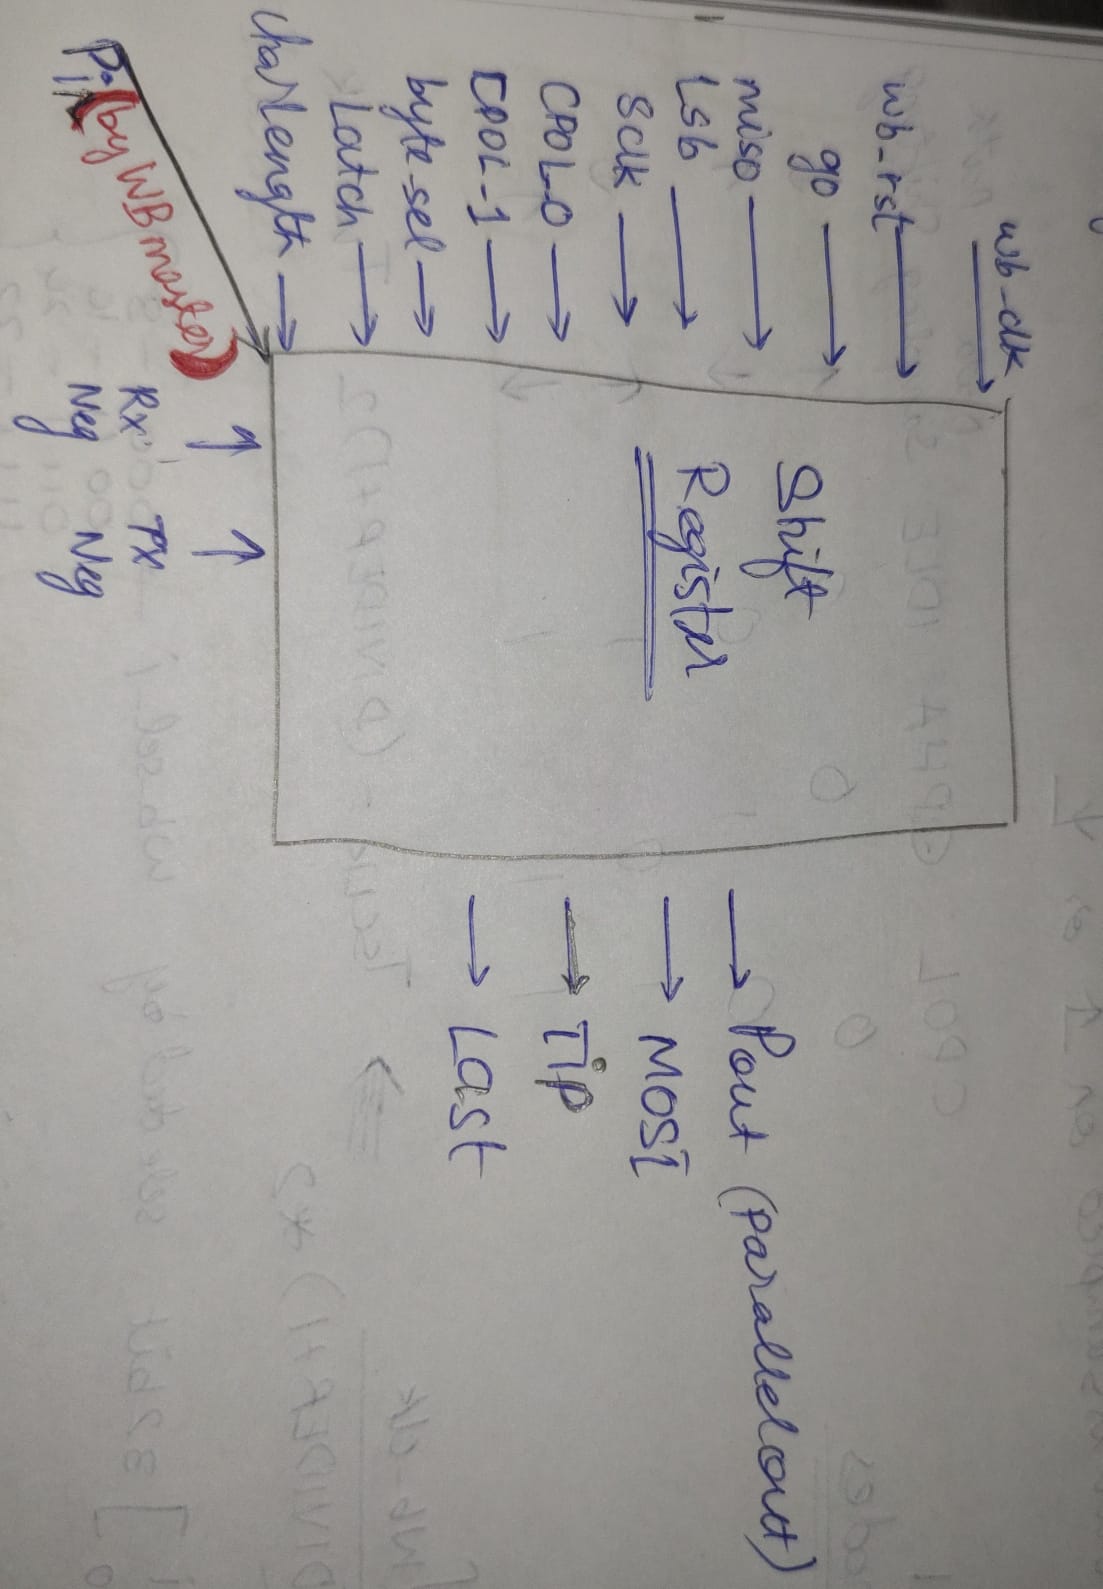 wb-clk
wb-rst
go
miso
Lsb
Sclk
CPOL-0
CPOL-1
byte-sel
Latch
Char length
P.in (by WB master)
Rx Neg
Tx Neg
Shift
Register
Pout (parallel out)
MOSI
Tip
Last